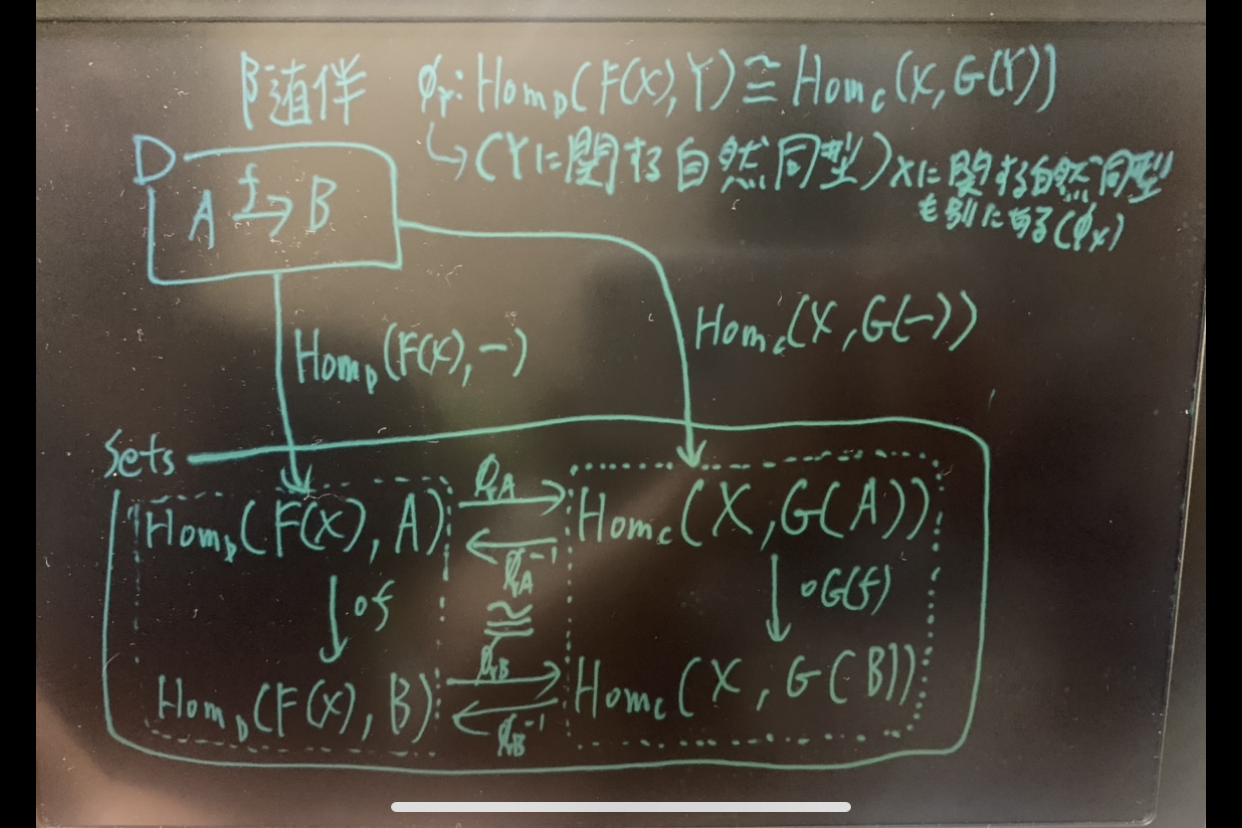 随伴 φ_Y: Hom_D(F(X), Y) ≅ Hom_C(X, G(Y))
↳ (Yに関する自然同型) Xに関する自然同型
も別にある(φ_X)
D
A f→ B
Hom_D(F(X), −)
Hom_C(X, G(−))
Sets
Hom_D(F(X), A) φ_YA → Hom_C(X, G(A))
← φ_YA⁻¹
↓∘f ≅ ↓∘G(f)
Hom_D(F(X), B) φ_YB → Hom_C(X, G(B))
← φ_YB⁻¹